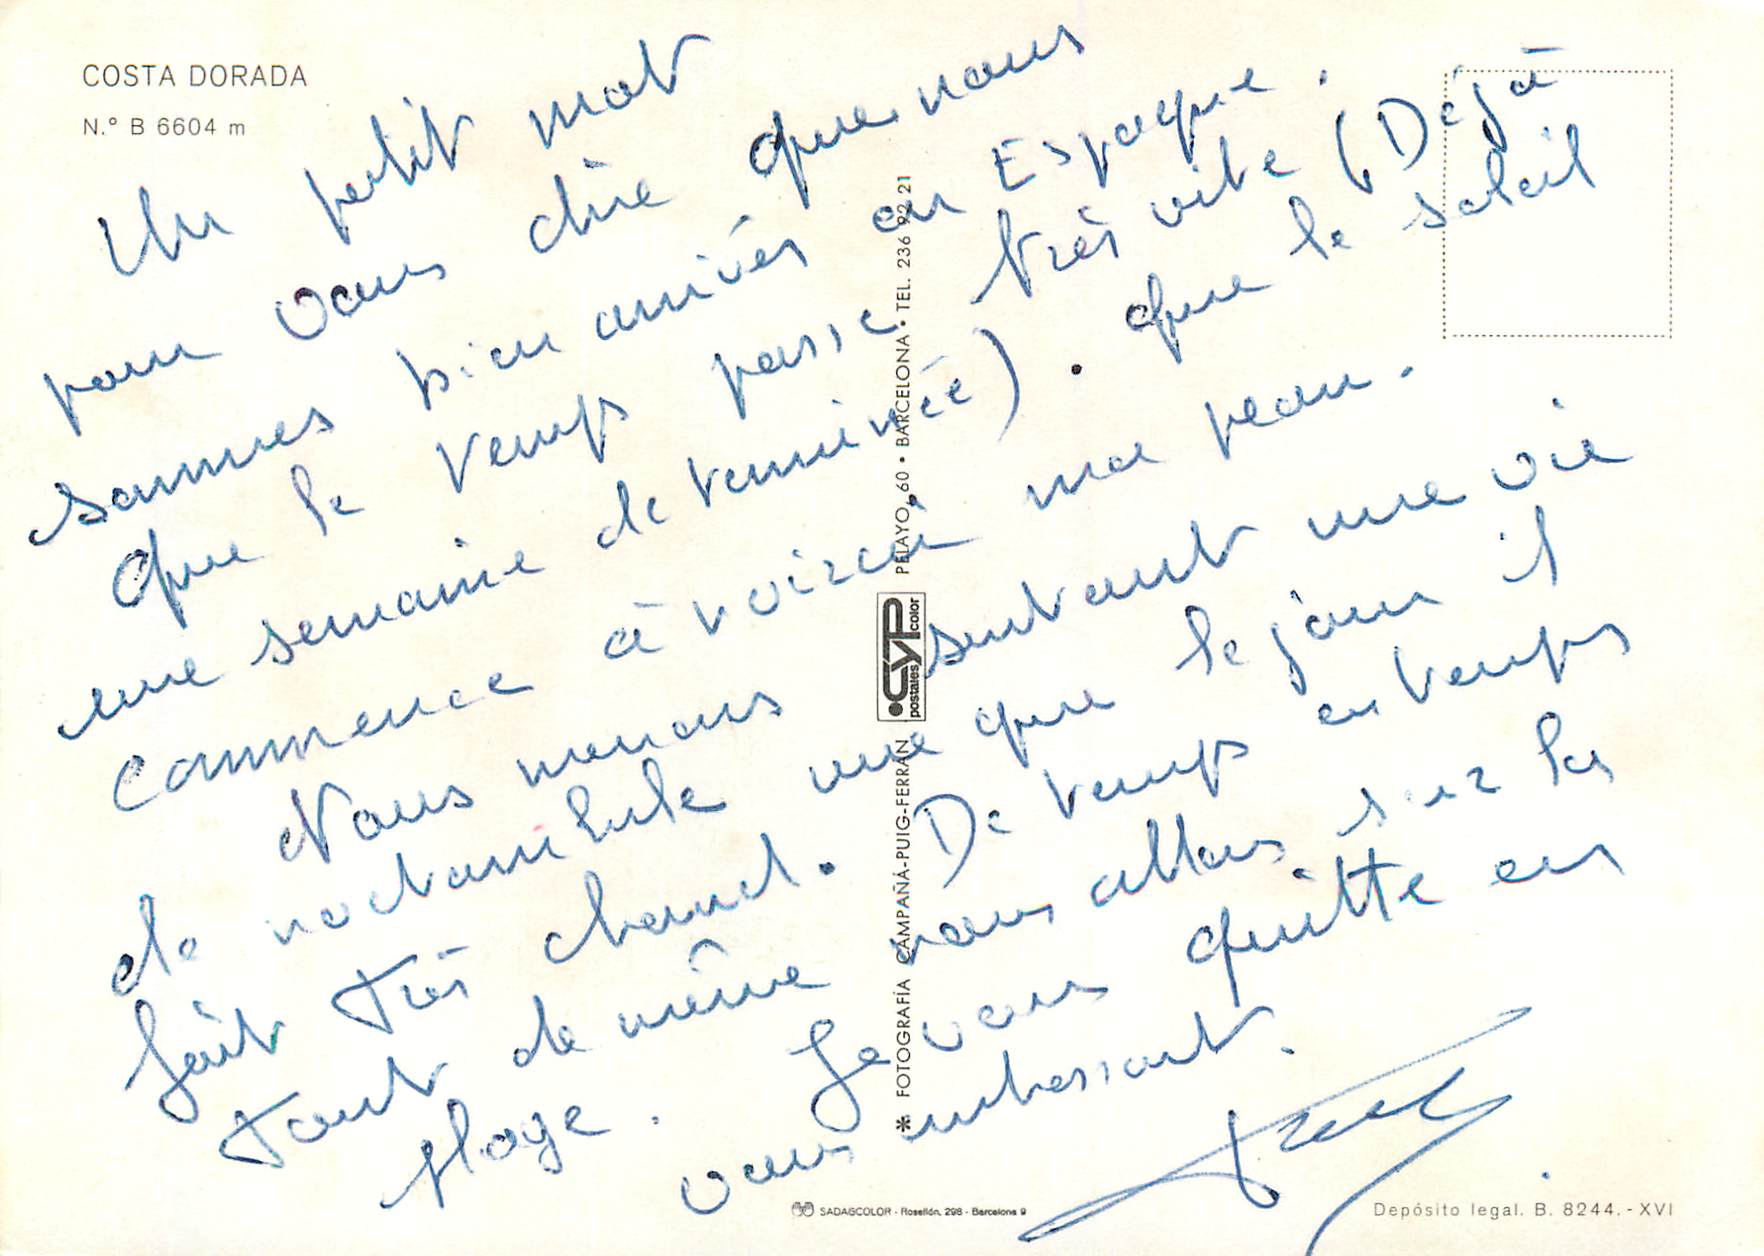 COSTA DORADA
N.º B 6604 m
Un petit mot
pour vous dire que nous
sommes bien arrivés en Espagne.
Que le temps passe très vite (Déjà
une semaine de terminée). que le soleil
commence à noircir ma peau.
Nous menons surtout une vie
de noctambule vue que le jour il
fait très chaud. De temps en temps
tout de même nous allons sur les
plage. Je vous quitte en
vous embrassant.
✻ FOTOGRAFÍA CAMPAÑÁ-PUIG-FERRÁN
CYP
postales color
PELAYO, 60 • BARCELONA • TEL. 236 92 21
SADAGCOLOR - Rosellón, 298 - Barcelona 9
Depósito legal. B. 8244.-XVI